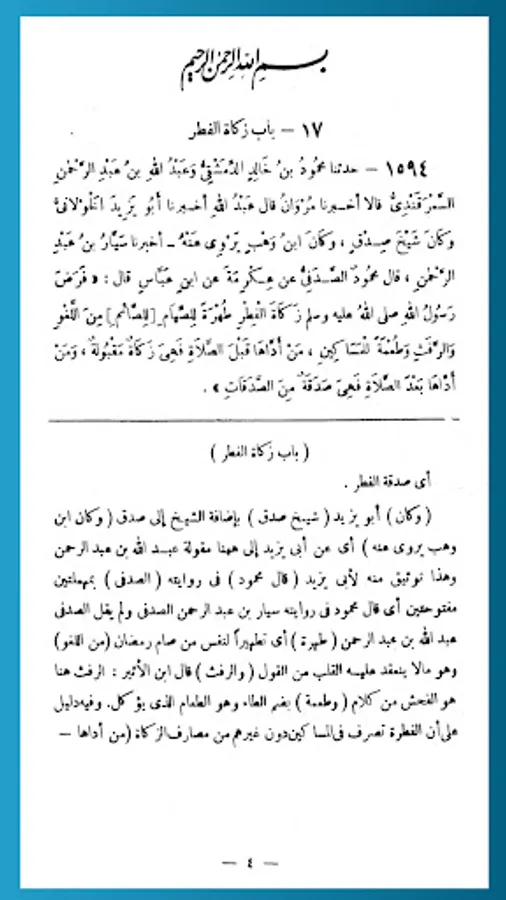 بسم الله الرحمن الرحيم
١٧ – باب زكاة الفطر
١٥٩٤ – حدثنا محمودُ بنُ خَالِدٍ الدِّمَشْقِيُّ وَعَبْدُ اللهِ بنُ عَبْدِ الرَّحْمٰنِ
السَّمَرْقَنْدِيُّ قالا أخبرنا مَرْوَانُ قال عَبْدُ اللهِ أخبرنا أَبُو يَزِيدَ الْخَوْلَانِيُّ
وَكَانَ شَيْخَ صِدْقٍ ، وَكَانَ ابنُ وَهْبٍ يَرْوِى عَنْهُ – أخبرنا سَيَّارُ بنُ عَبْدِ
الرَّحْمٰنِ ، قال محمودٌ الصَّدَفِيُّ عن عِكْرِمَةَ عن ابنِ عَبَّاسٍ قال : « فَرَضَ
رَسُولُ اللهِ صلى اللهُ عليه وسلم زَكَاةَ الْفِطْرِ طُهْرَةً لِلصِّيَامِ [لِلصَّائمِ] مِنَ اللَّغْوِ
وَالرَّفَثِ وَطُعْمَةً لِلْمَسَاكِينِ ، مَنْ أَدَّاهَا قَبْلَ الصَّلَاةِ فَهِىَ زَكَاةٌ مَقْبُولَةٌ ، وَمَنْ
أَدَّاهَا بَعْدَ الصَّلَاةِ فَهِىَ صَدَقَةٌ مِنَ الصَّدَقَاتِ » .
( باب زكاة الفطر )
أى صدقة الفطر .
( وكان ) أبو يزيد ( شيخ صدق ) بإضافة الشيخ إلى صدق ( وكان ابن
وهب يروى عنه ) أى عن أبى يزيد إلى ههنا مقولة عبد الله بن عبد الرحمن
وهذا توثيق منه لأبى يزيد ( قال محمود ) فى روايته ( الصدفى ) بمهملتين
مفتوحتين أى قال محمود فى روايته سيار بن عبد الرحمن الصدفى ولم يقل الصدفى
عبد الله بن عبد الرحمن ( طهرة ) أى تطهيراً لنفس من صام رمضان (من اللغو)
وهو مالا ينعقد عليه القلب من القول ( والرفث ) قال ابن الأثير : الرفث هنا
هو الفحش من كلام ( وطعمة ) بضم الطاء وهو الطعام الذى يؤكل. وفيه دليل
على أن الفطرة تصرف فى المساكين دون غيرهم من مصارف الزكاة (من أداها –
– ٤ –